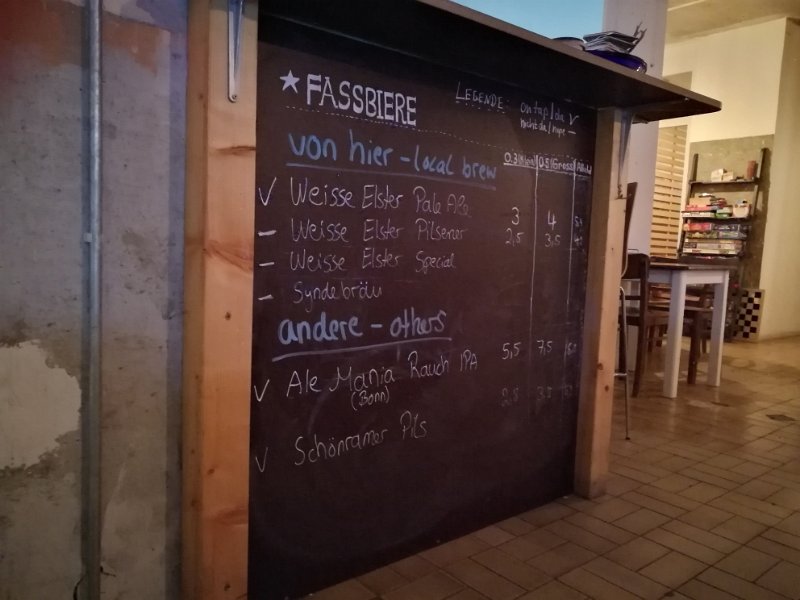 ★ FASSBIERE
LEGENDE: on tap/da ✓
nicht da/nope –
von hier – local brew
0.3 Klein 0.5 Gross
✓ Weisse Elster Pale Ale 3 4
– Weisse Elster Pilsener 2,5 3,5
– Weisse Elster Special
– Syndebräu
andere – others
✓ Ale Mania Rauch IPA 5,5 7,5
(Bonn)
✓ Schönramer Pils 2,5 3,5